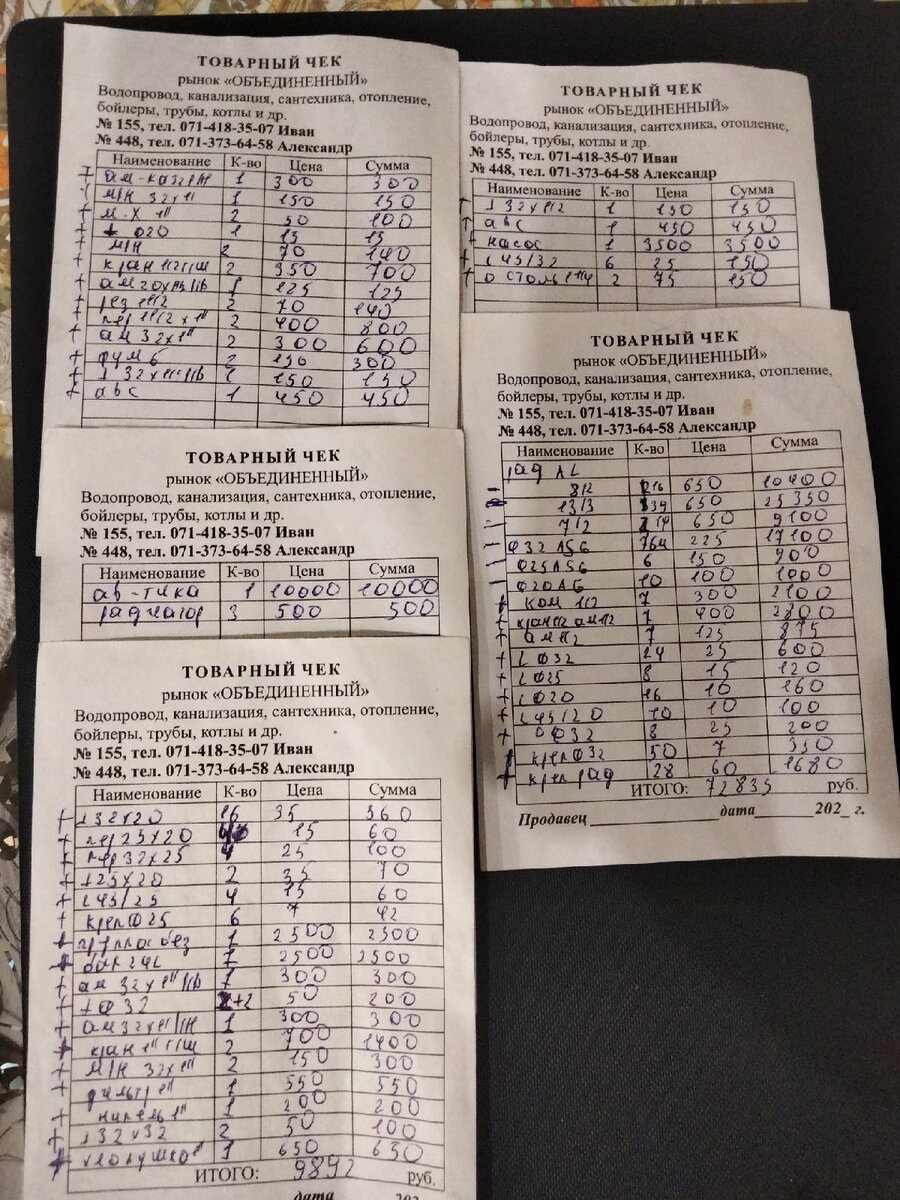 ТОВАРНЫЙ ЧЕК
рынок «ОБЪЕДИНЕННЫЙ»
Водопровод, канализация, сантехника, отопление,
бойлеры, трубы, котлы и др.
№ 155, тел. 071-418-35-07 Иван
№ 448, тел. 071-373-64-58 Александр
Наименование К-во Цена Сумма
+ 1 300 300
М/Н 32х1" 1 150 150
+ М-Х 1" 2 50 100
+ ⊥ 020 1 15 15
М/Н 2 70 140
+ кран 11/2 г/ш 2 350 700
+ 1 125 125
+ рез 11/2 2 70 140
+ пер 11/2х1" 2 400 800
+ ам 32х1" 2 300 600
+ фум б 2 150 300
+ 1 150 150
+ авс 1 450 450
ТОВАРНЫЙ ЧЕК
рынок «ОБЪЕДИНЕННЫЙ»
Водопровод, канализация, сантехника, отопление,
бойлеры, трубы, котлы и др.
№ 155, тел. 071-418-35-07 Иван
№ 448, тел. 071-373-64-58 Александр
Наименование К-во Цена Сумма
1 150 150
авс 1 450 450
+ насос 1 3500 3500
+ L 45/32 6 25 150
2 75 150
ТОВАРНЫЙ ЧЕК
рынок «ОБЪЕДИНЕННЫЙ»
Водопровод, канализация, сантехника, отопление,
бойлеры, трубы, котлы и др.
№ 155, тел. 071-418-35-07 Иван
№ 448, тел. 071-373-64-58 Александр
Наименование К-во Цена Сумма
ав-тика 1 10000 10000
радиатор 3 500 500
ТОВАРНЫЙ ЧЕК
рынок «ОБЪЕДИНЕННЫЙ»
Водопровод, канализация, сантехника, отопление,
бойлеры, трубы, котлы и др.
№ 155, тел. 071-418-35-07 Иван
№ 448, тел. 071-373-64-58 Александр
Наименование К-во Цена Сумма
рад AL
8/2 16 650 10400
13/3 39 650 25350
7/2 14 650 9100
Ф32 ASG 76м 225 17100
Ф25 ASG 6 150 900
Ф20 AG 10 100 1000
+ ком 1/2 7 300 2100
+ кран 1/2 ам 1/2 7 400 2800
+ ам 1/2 7 125 875
+ L Ф32 24 25 600
+ L Ф25 8 15 120
+ L Ф20 16 10 160
+ L 45/20 10 10 100
+ Ф32 8 25 200
+ креп Ф32 50 7 350
+ креп рад 28 60 1680
ИТОГО: 72835 руб.
Продавец дата 202_ г.
ТОВАРНЫЙ ЧЕК
рынок «ОБЪЕДИНЕННЫЙ»
Водопровод, канализация, сантехника, отопление,
бойлеры, трубы, котлы и др.
№ 155, тел. 071-418-35-07 Иван
№ 448, тел. 071-373-64-58 Александр
Наименование К-во Цена Сумма
+ ⊥ 32х20 16 35 560
+ пер 25х20 15 60
пер 32х25 4 25 100
+ ⊥ 25х20 2 35 70
+ L 45/25 4 15 60
+ креп Ф25 6 7 42
+ группа без 1 2500 2500
+ бак 24L 1 2500 2500
+ 1 300 300
+ ⊥ Ф32 2+2 50 200
+ ам 32х1"/Н 1 300 300
+ кран 1" г/ш 2 700 1400
+ М/Н 32х1" 2 150 300
+ фильтр 1" 1 550 550
+ нипель 1" 1 200 200
+ ⊥ 32х32 2 50 100
+ хлопушка 1" 1 650 650
ИТОГО: 9892 руб.
дата 202